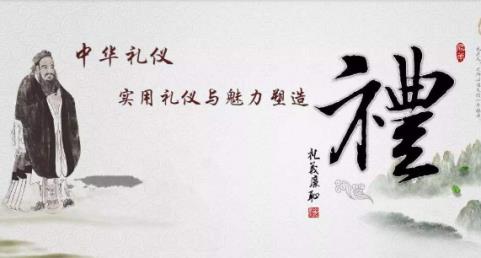 中华礼仪
实用礼仪与魅力塑造
禮
礼義廉恥